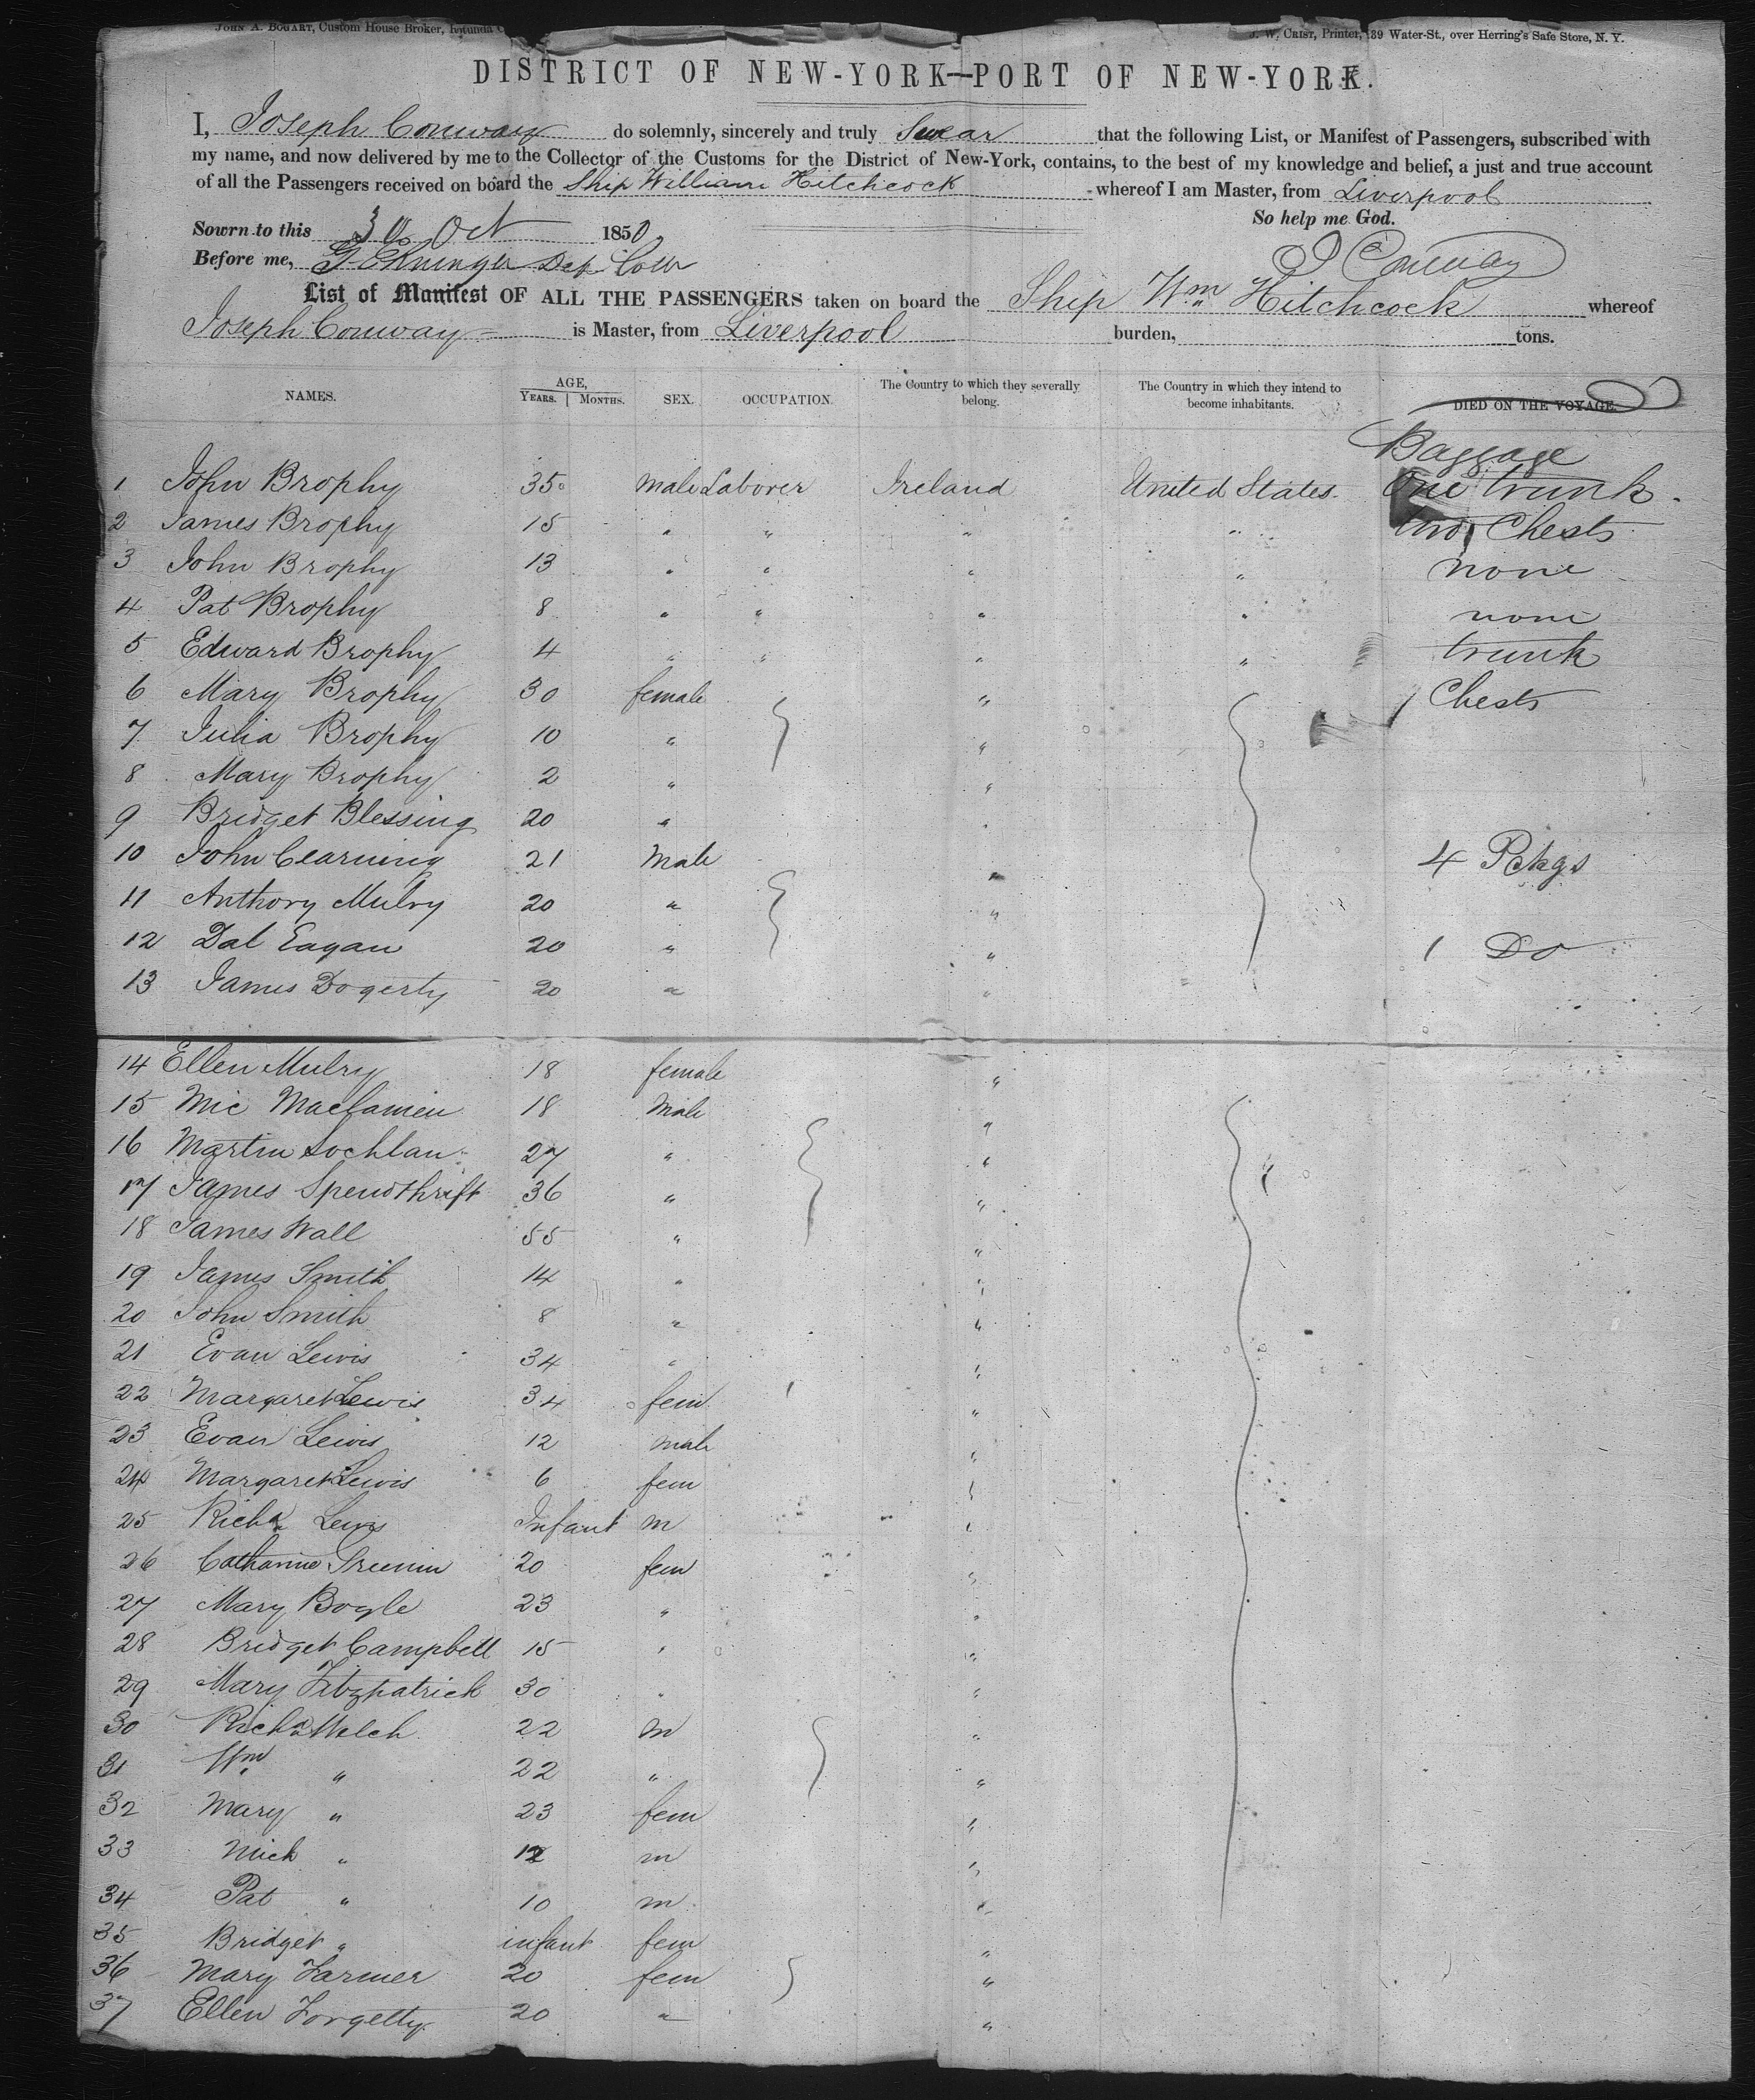 JOHN A. BOGART, Custom House Broker, Rotunda
J. W. CRIST, Printer, 39 Water-St., over Herring's Safe Store, N. Y.
DISTRICT OF NEW-YORK—PORT OF NEW-YORK.
I, Joseph Conway do solemnly, sincerely and truly Swear that the following List, or Manifest of Passengers, subscribed with
my name, and now delivered by me to the Collector of the Customs for the District of New-York, contains, to the best of my knowledge and belief, a just and true account
of all the Passengers received on board the Ship William Hitchcock whereof I am Master, from Liverpool
So help me God.
Sowrn to this 30 Oct 1850
Before me, Dep Coll
J Conway
List of Manifest OF ALL THE PASSENGERS taken on board the Ship Wm Hitchcock whereof
Joseph Conway is Master, from Liverpool burden, tons.
NAMES. AGE, YEARS. MONTHS. SEX. OCCUPATION. The Country to which they severally belong. The Country in which they intend to become inhabitants. DIED ON THE VOYAGE.
Baggage
1 John Brophy 35 Male Laborer Ireland United States. One trunk.
2 James Brophy 15 " " " " two Chests
3 John Brophy 13 " " " " none
4 Pat Brophy 8 " " " " none
5 Edward Brophy 4 " " " " trunk
6 Mary Brophy 30 female " 1 Chests
7 Julia Brophy 10 " "
8 Mary Brophy 2 " "
9 Bridget Blessing 20 " "
10 John Clearning 21 Male " 4 Pckgs
11 Anthony Mulry 20 " "
12 Dal Eagan 20 " " 1 Do
13 James Dogerty 20 " "
14 Ellen Mulry 18 female "
15 Mic 18 Male "
16 Martin Lochlan 27 " "
17 James Spendthrift 36 " "
18 James Wall 55 " "
19 James Smith 14 " "
20 John Smith 8 " "
21 Evan Lewis 34 " "
22 Margaret Lewis 34 fem "
23 Evan Lewis 12 male "
24 Margaret Lewis 6 fem "
25 Richd Lewis Infant m "
26 Catharine 20 fem "
27 Mary Bogle 23 " "
28 Bridget Campbell 15 " "
29 Mary Fitzpatrick 30 " "
30 Richd Welch 22 m "
31 Wm " 22 " "
32 Mary " 23 fem "
33 Mich " 12 m "
34 Pat " 10 m "
35 Bridget " infant fem "
36 Mary Farmer 20 fem "
37 Ellen Forgetty 20 " "